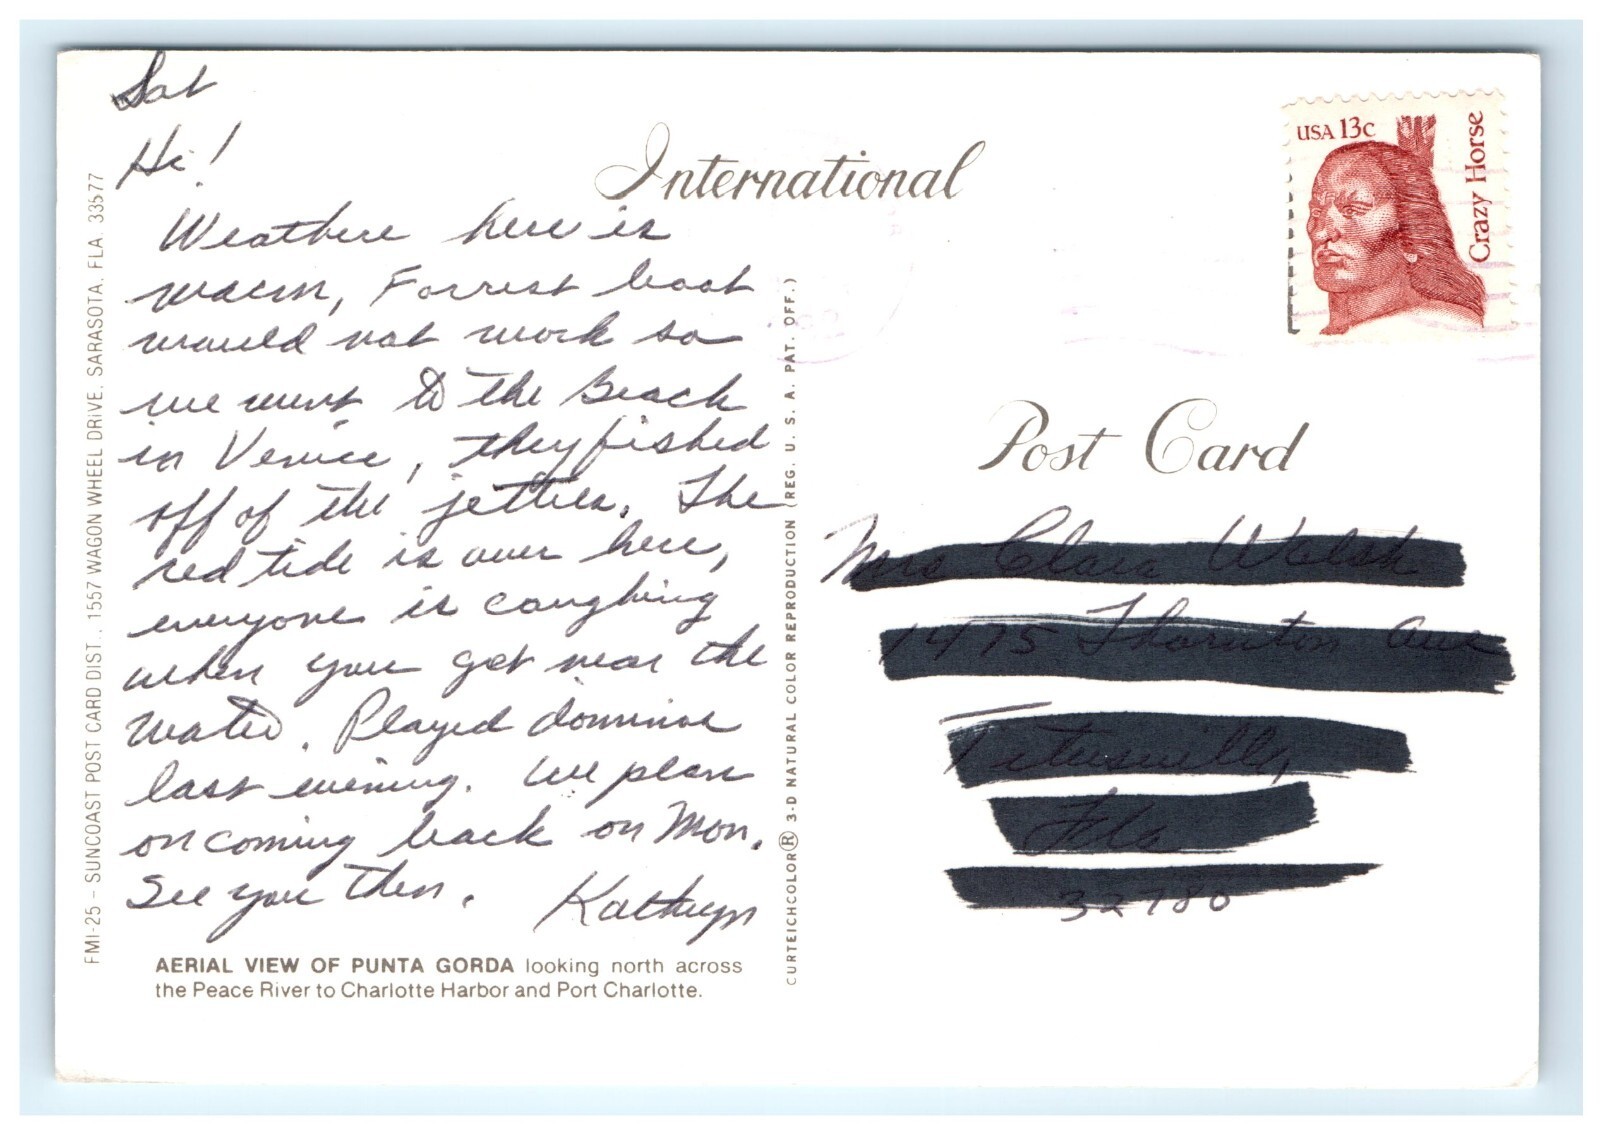 Sat
Hi!
Weather here is
warm, Forrest boat
would not work so
we went to the Beach
in Venice, they fished
off of the jetties. The
red tide is over here,
everyone is coughing
when you get near the
water. Played dominoe
last evening. We plan
on coming back on Mon.
See you then. Kathryn
AERIAL VIEW OF PUNTA GORDA looking north across
the Peace River to Charlotte Harbor and Port Charlotte.
FMI-25 - SUNCOAST POST CARD DIST., 1557 WAGON WHEEL DRIVE, SARASOTA, FLA. 33577
CURTEICHCOLOR® 3-D NATURAL COLOR REPRODUCTION (REG. U. S. A. PAT. OFF.)
International
USA 13c
Crazy Horse
Post Card